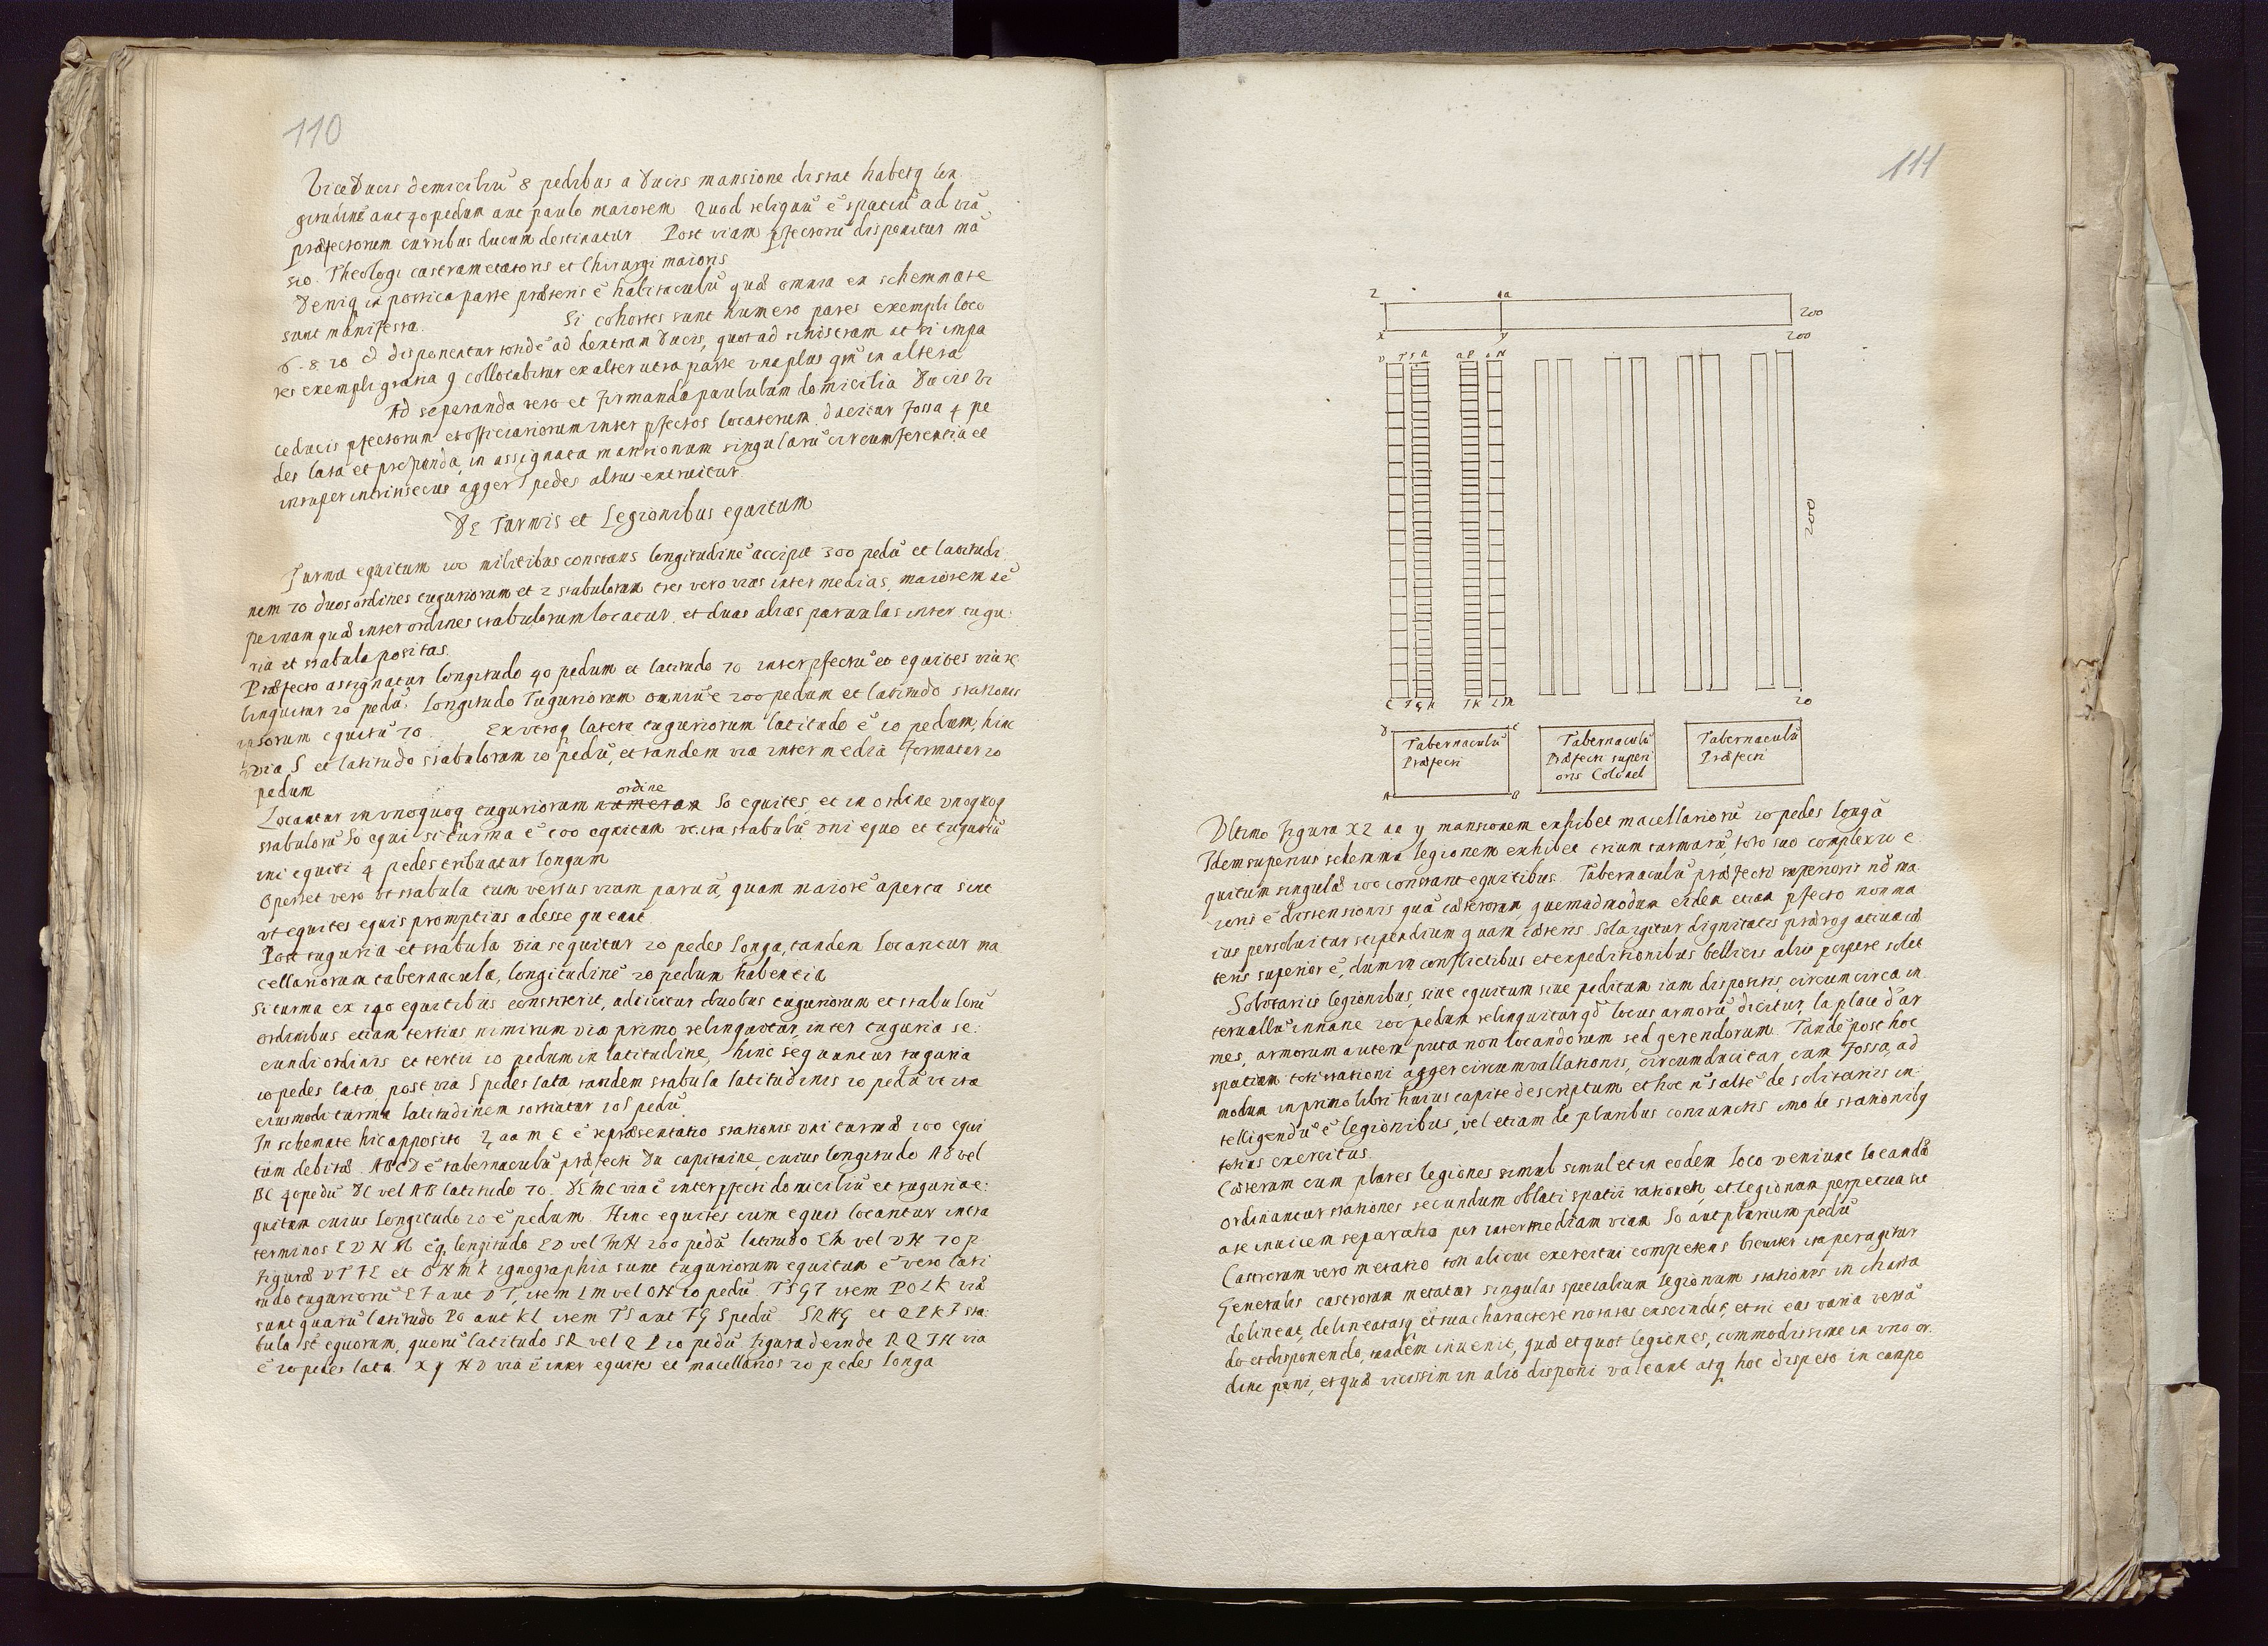 110
ViceDucis domiciliũ 8 pedibus a Ducis mansione distat habetq lon
gitudinẽ aut 40 pedum aut paulo maiorem Quod reliquũ ẽ spatiũ ad viã
præfectorum curribus ducum destinatur Post viam pfectorũ disponitur mã
sio Theologi castrametatoris et Chirurgi maioris
Deniq in postica parte prætoris ẽ habitaculũ quæ omnia ex schemmate
sunt manifesta. Si cohortes sunt numero pares exempli loco
6 - 8 10 disponentur ad dextram Ducis, quot ad sinistram at si impa
res exempli gratia 9 collocabitur ex alterutra parte una plus in altera
Ad separanda vero et firmanda paululum domicilia Ducis Vi
ceducis pfectorum et officiariorum inter pfectos locatorum ducitur fossa 4 pe
des lata et profonda, in assignata mansionum singularũ circumferentia et
insuper intrinsecus agger 5 pedes altus extruitur
De Turmis et Legionibus equitum
Turma equitum 100 militibus constans longitudinẽ accipit 300 pedũ et latitudi
nem 70 duos ordines tuguriorum et 2 stabulorum tres vero vias intermedias, maiorem sẽ
pe unam quæ inter ordines stabulorum locatur et duas alias paruulas inter tugu:
ria et stabula positas.
Præfecto assignatur longitudo 40 pedum et latitudo 70 inter pfectũ et equites via re
linquitur 20 pedũ. Longitudo Tuguriorum omniũ ẽ 200 pedum et latitudo stationis
ipsorum equitũ 70 Ex utroq latere tuguriorum latitudo ẽ 10 pedum, hinc
via 5 et latitudo stabulorum 10 pedũ, et tandem via intermedia formatur 20
pedum
ordine
Locantur in unoquoq tuguriorum numeron 50 equites, et in ordine unoquoq
stabulorũ 50 equi si turma ẽ 100 equitum ut ita stabulũ uni equo et tuguriũ
uni equiti 4 pedes tribuatur longum
Oportet vero ut stabula tum versus viam paruã, quam maiorẽ aperta sint
ut equites equis promptius adesse queant
Post tuguria et stabula via sequitur 20 pedes longa, tandem locantur ma
cellariorum tabernacula, longitudinẽ 20 pedum habentia
Si turma ex 140 equitibus constiterit, adiicitur duobus tuguriorum et stabulorũ
ordinibus etiam tertius nimirum via primo relinquitur inter tuguria se:
cundi ordinis et tertii 10 pedum in latitudine, hinc sequuntur tuguria
10 pedes lata post via 5 pedes lata tandem stabula latitudinis 10 pedũ ut ita
eiusmodi turma latitudinem sortiatur 105 pedũ
In schemate hic apposito Z aa m E ẽ repræsentatio stationis uni turmæ 100 equi
tum debitæ. ABCD ẽ tabernaculũ præfecti Du capitaine, cuius longitudo AD vel
BC 40 pedũ DC vel AB latitudo 70. DEMC via ẽ inter pfecti domiciliũ et tuguria e:
quitum cuius longitudo 20 ẽ pedum. Hinc equites cum equis locantur intra
terminos EVNM longitudo EV vel MN 200 pedũ latitudo EM vel VN 70 p
Figuræ VTFE et ONML ignographia sunt tuguriorum equitum ẽ vero lati
tudo tuguriorũ EF aut VT, item LM vel ON 10 pedũ. TSGF item POLK viæ
sunt quarũ latitudo PO aut KL item TS aut FG 5 pedũ SRHG et QPKI sta
bula sẽ equorum, quorũ latitudo SR vel QP 10 pedũ figura deinde RQIH via
ẽ 20 pedes lata. X y N V via ẽ inter equites et macellarios 20 pedes longa
111
Z
aa
200
x
y
200
V T S R
Q P O N
200
E F G H
I K L M
20
D
C
Tabernaculũ
Præfecti
A
B
Tabernaculũ
Præfecti superi
oris Colonel
Tabernaculũ
Præfecti
Ultimo Figura X Z aa y mansionem exhibet macellariorũ 20 pedes longã
Idem superius schemma legionem exhibet trium turmarũ, toto suo complexu e
quitum singulæ 100 constant equitibus. Tabernaculũ præfecti superioris nõ ma
ioris ẽ distensionis quã cæterorum, quemadmodum eidem etiam pfecto non ma
ius persoluitur stipendium quam cæteris. Sola igitur dignitatis prærogatiua cæ
teris superior ẽ, dum in conflictibus et expeditionibus bellicis aliis solet
Solitariis legionibus, siue equitum siue peditum iam dispositis, circumcirca in
teruallũ inane 200 pedum relinquitur qd locus armorũ dicitur, la place d'ar
mes, armorum autem puta non locandorum sed gerendorum. Tandẽ post hoc
spatium toti stationi agger circumuallationis, circumducitur cum fossa, ad
modum in primo libri huius capite descriptum et hoc de solitariis in:
telligendũ ẽ legionibus, vel etiam de pluribus coniunctis imo de stationibq
totius exercitus.
Cæterum cum plures legiones simul simul et in eodem loco veniunt locandæ
ordinantur stationes secundum oblati spatii rationem, et legionum perpetua sit
a se inuicem separatio per intermediam viam 50 aut plurium pedũ
Castrorum vero metatio toti alicui exercitui competens breuiter ita peragitur
Generalis castrorum metatur singulas specialium legionum stationes in charta
delineat, delineatasq et sua charactere notatas exscindit, et si eas varia versã
do et disponendo, tandẽm inuenit, quæ et quot legiones, commodissime in uno or
dine poni, et quæ vicissim in alio disponi valeant atq hoc disposito in campo